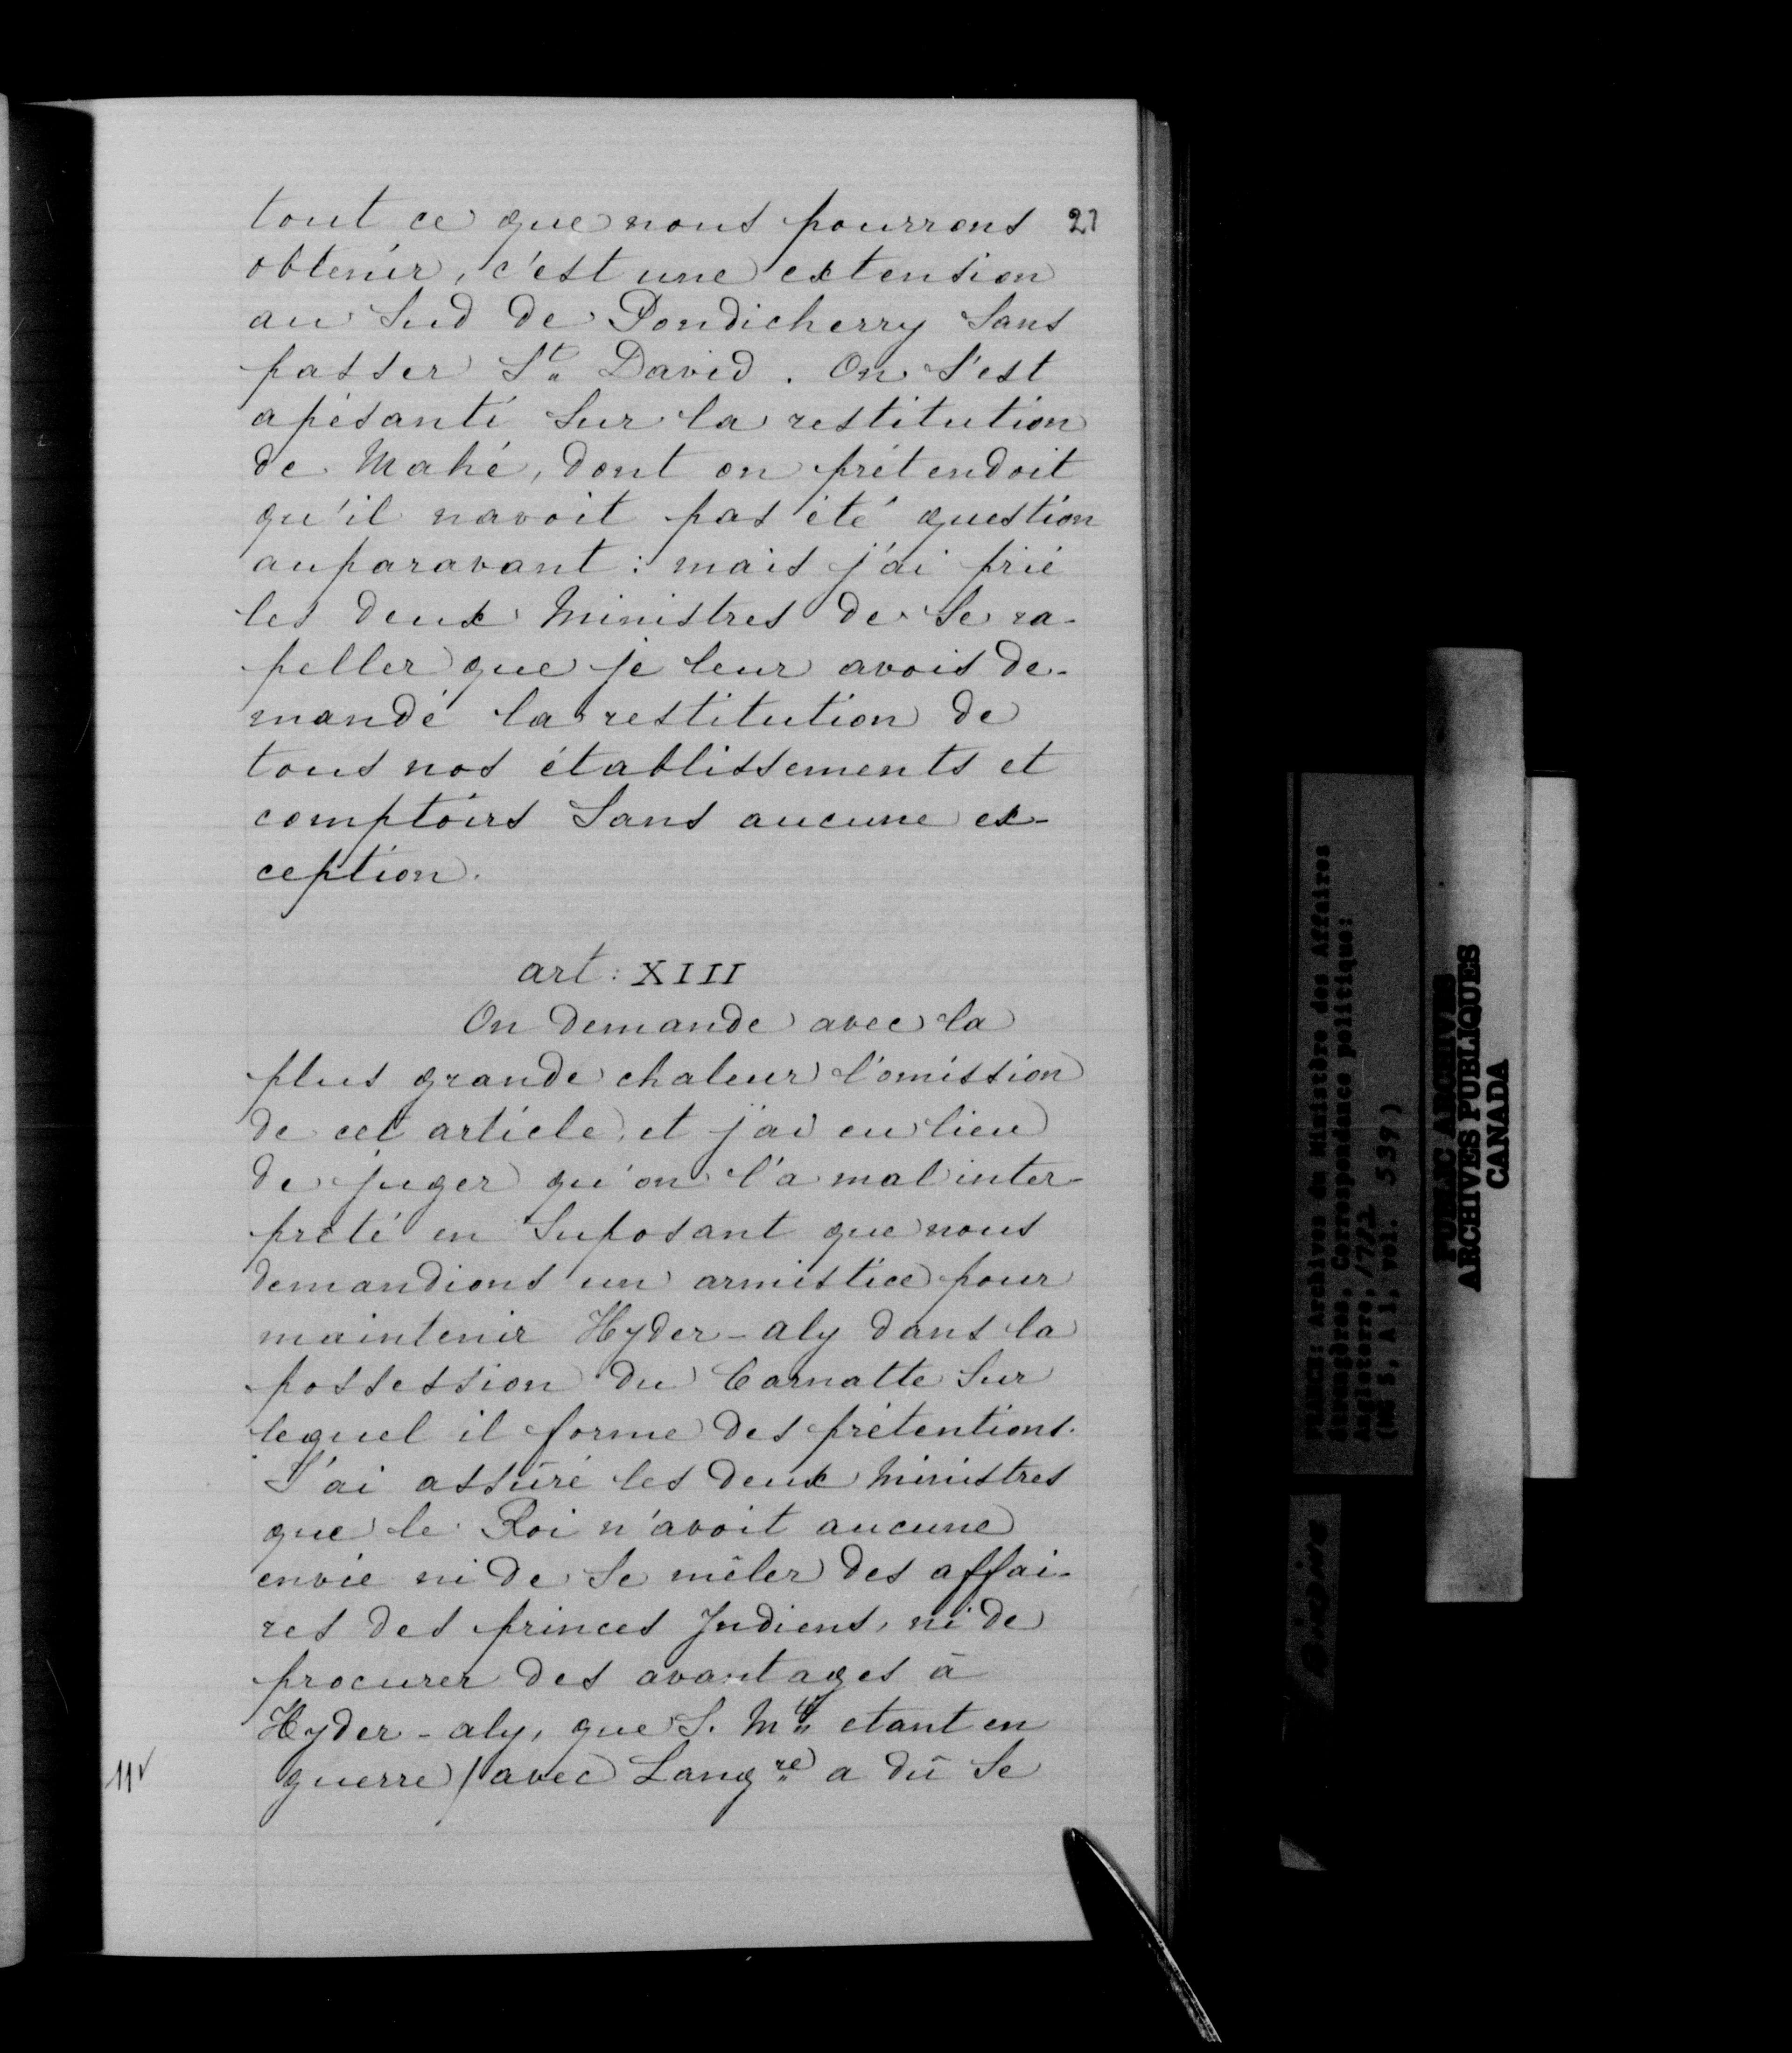 27
tout ce que nous pourrons
obtenir, c'est une extension
au Sud de Pondicherry Sans
passer St David. On S'est
apésanti Sur la restitution
de Mahé, dont on prétendoit
qu'il navoit pas été question
auparavant : mais j'ai prié
les deux Ministres de Se ra-
peller que je leur avois de-
mandé la restitution de
tous nos établissements et
comptoirs Sans aucune ex-
ception.
art : XIII
On demande avec la
plus grande chaleur l'omission
de cet article, et j'ai eu lieu
de juger qu'on l'a mal inter-
prêté en Suposant que nous
demandions un armistice pour
maintenir Hyder-aly dans la
possession du Carnatte Sur
lequel il forme des prétentions.
J'ai assuré les deux Ministres
que le Roi n'avoit aucune
envie ni de Se mêler des affai-
res des princes Indiens, ni de
procurer des avantages à
Hyder-aly, que S. Mté etant en
11v guerre / avec Langre a dû Se
FRANCE: Archives du Ministère des Affaires
étrangères, Correspondance politique:
Angleterre, 1782
(MG 5, A 1, vol. 539)
PUBLIC ARCHIVES
ARCHIVES PUBLIQUES
CANADA